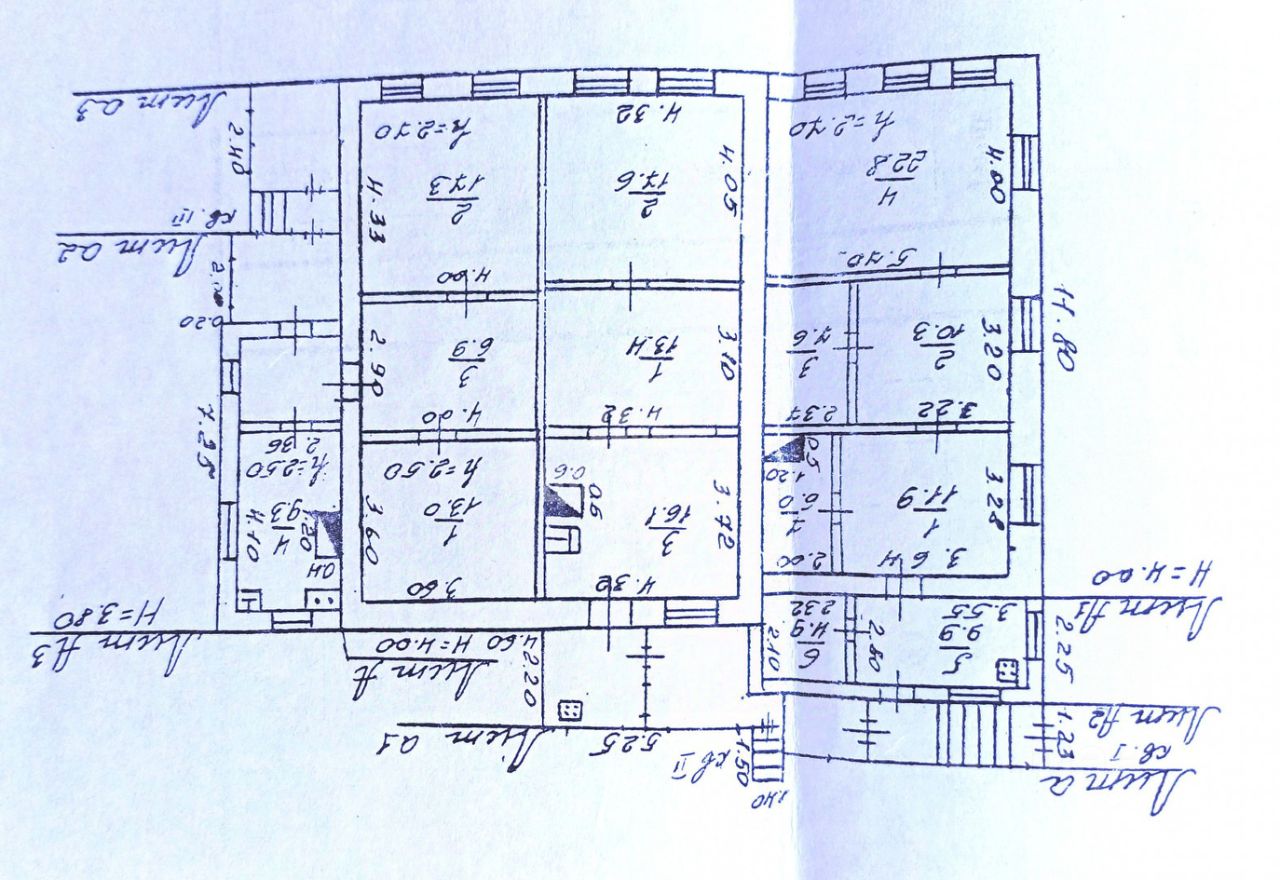 Лит а
кв. I
1.23
Лит А2
1.40
1.50
кв II
5.25
Лит а1
2.20
4.60
Лит А
H=4.00
Лит А3
H=3.80
2.25
5
9.9
3.55
2.80
6
4.9
2.32
2.10
Лит А1
H=4.00
3.64
1
11.9
3.28
2.00
7
6.0
1.20
0.5
4.32
3
16.1
3.72
0.6
0.6
3.60
1
13.0
3.60
h=2.50
0.4
1.20
4
9.3
4.10
h=2.50
2.36
7.25
11.80
3.22
2
10.3
3.20
2.37
3
7.6
4.32
1
13.4
3.10
4.00
3
6.9
2.90
0.20
5.70
4
22.8
4.00
h=2.70
2
17.6
4.05
4.32
4.00
2
17.3
4.33
h=2.70
Лит а2
кв. III
2.40
Лит а3